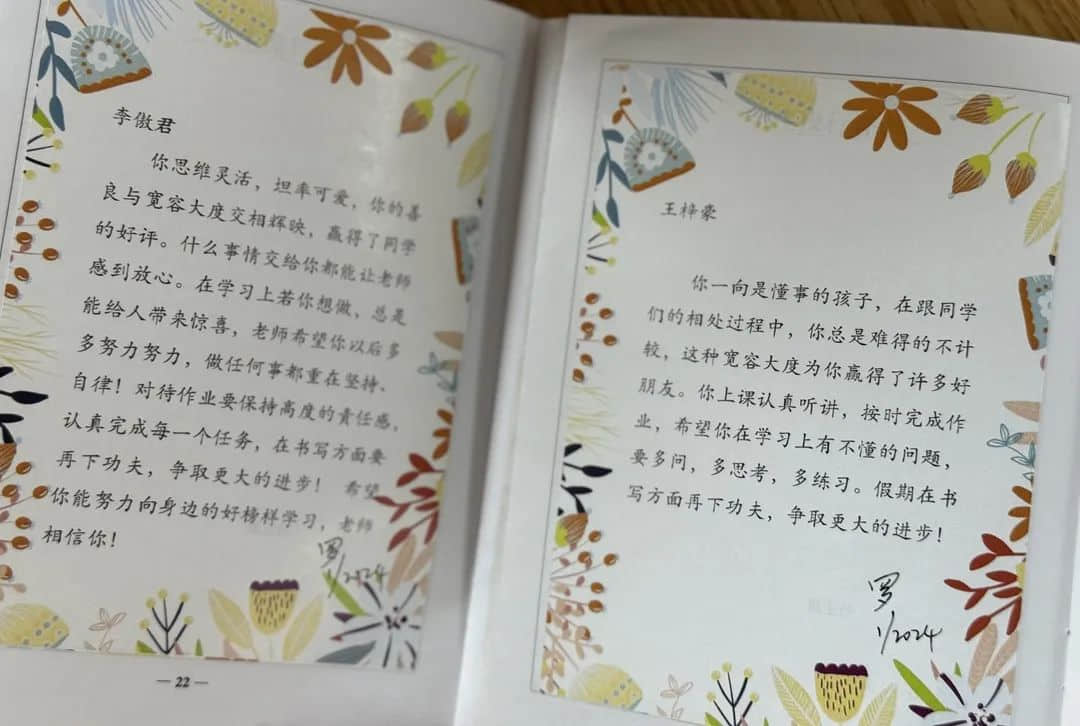 李傲君
你思维灵活，坦率可爱，你的善
良与宽容大度交相辉映，赢得了同学
的好评。什么事情交给你都能让老师
感到放心。在学习上若你想做、总是
能给人带来惊喜，老师希望你以后多
多努力努力，做任何事都重在坚持、
自律！对待作业要保持高度的责任感，
认真完成每一个任务，在书写方面要
再下功夫，争取更大的进步！ 希望
你能努力向身边的好榜样学习，老师
相信你！
罗
1/2024
— 22 —
王梓豪
你一向是懂事的孩子，在跟同学
们的相处过程中，你总是难得的不计
较，这种宽容大度为你赢得了许多好
朋友。你上课认真听讲，按时完成作
业，希望你在学习上有不懂的问题，
要多问，多思考，多练习。假期在书
写方面再下功夫，争取更大的进步！
罗
1/2024